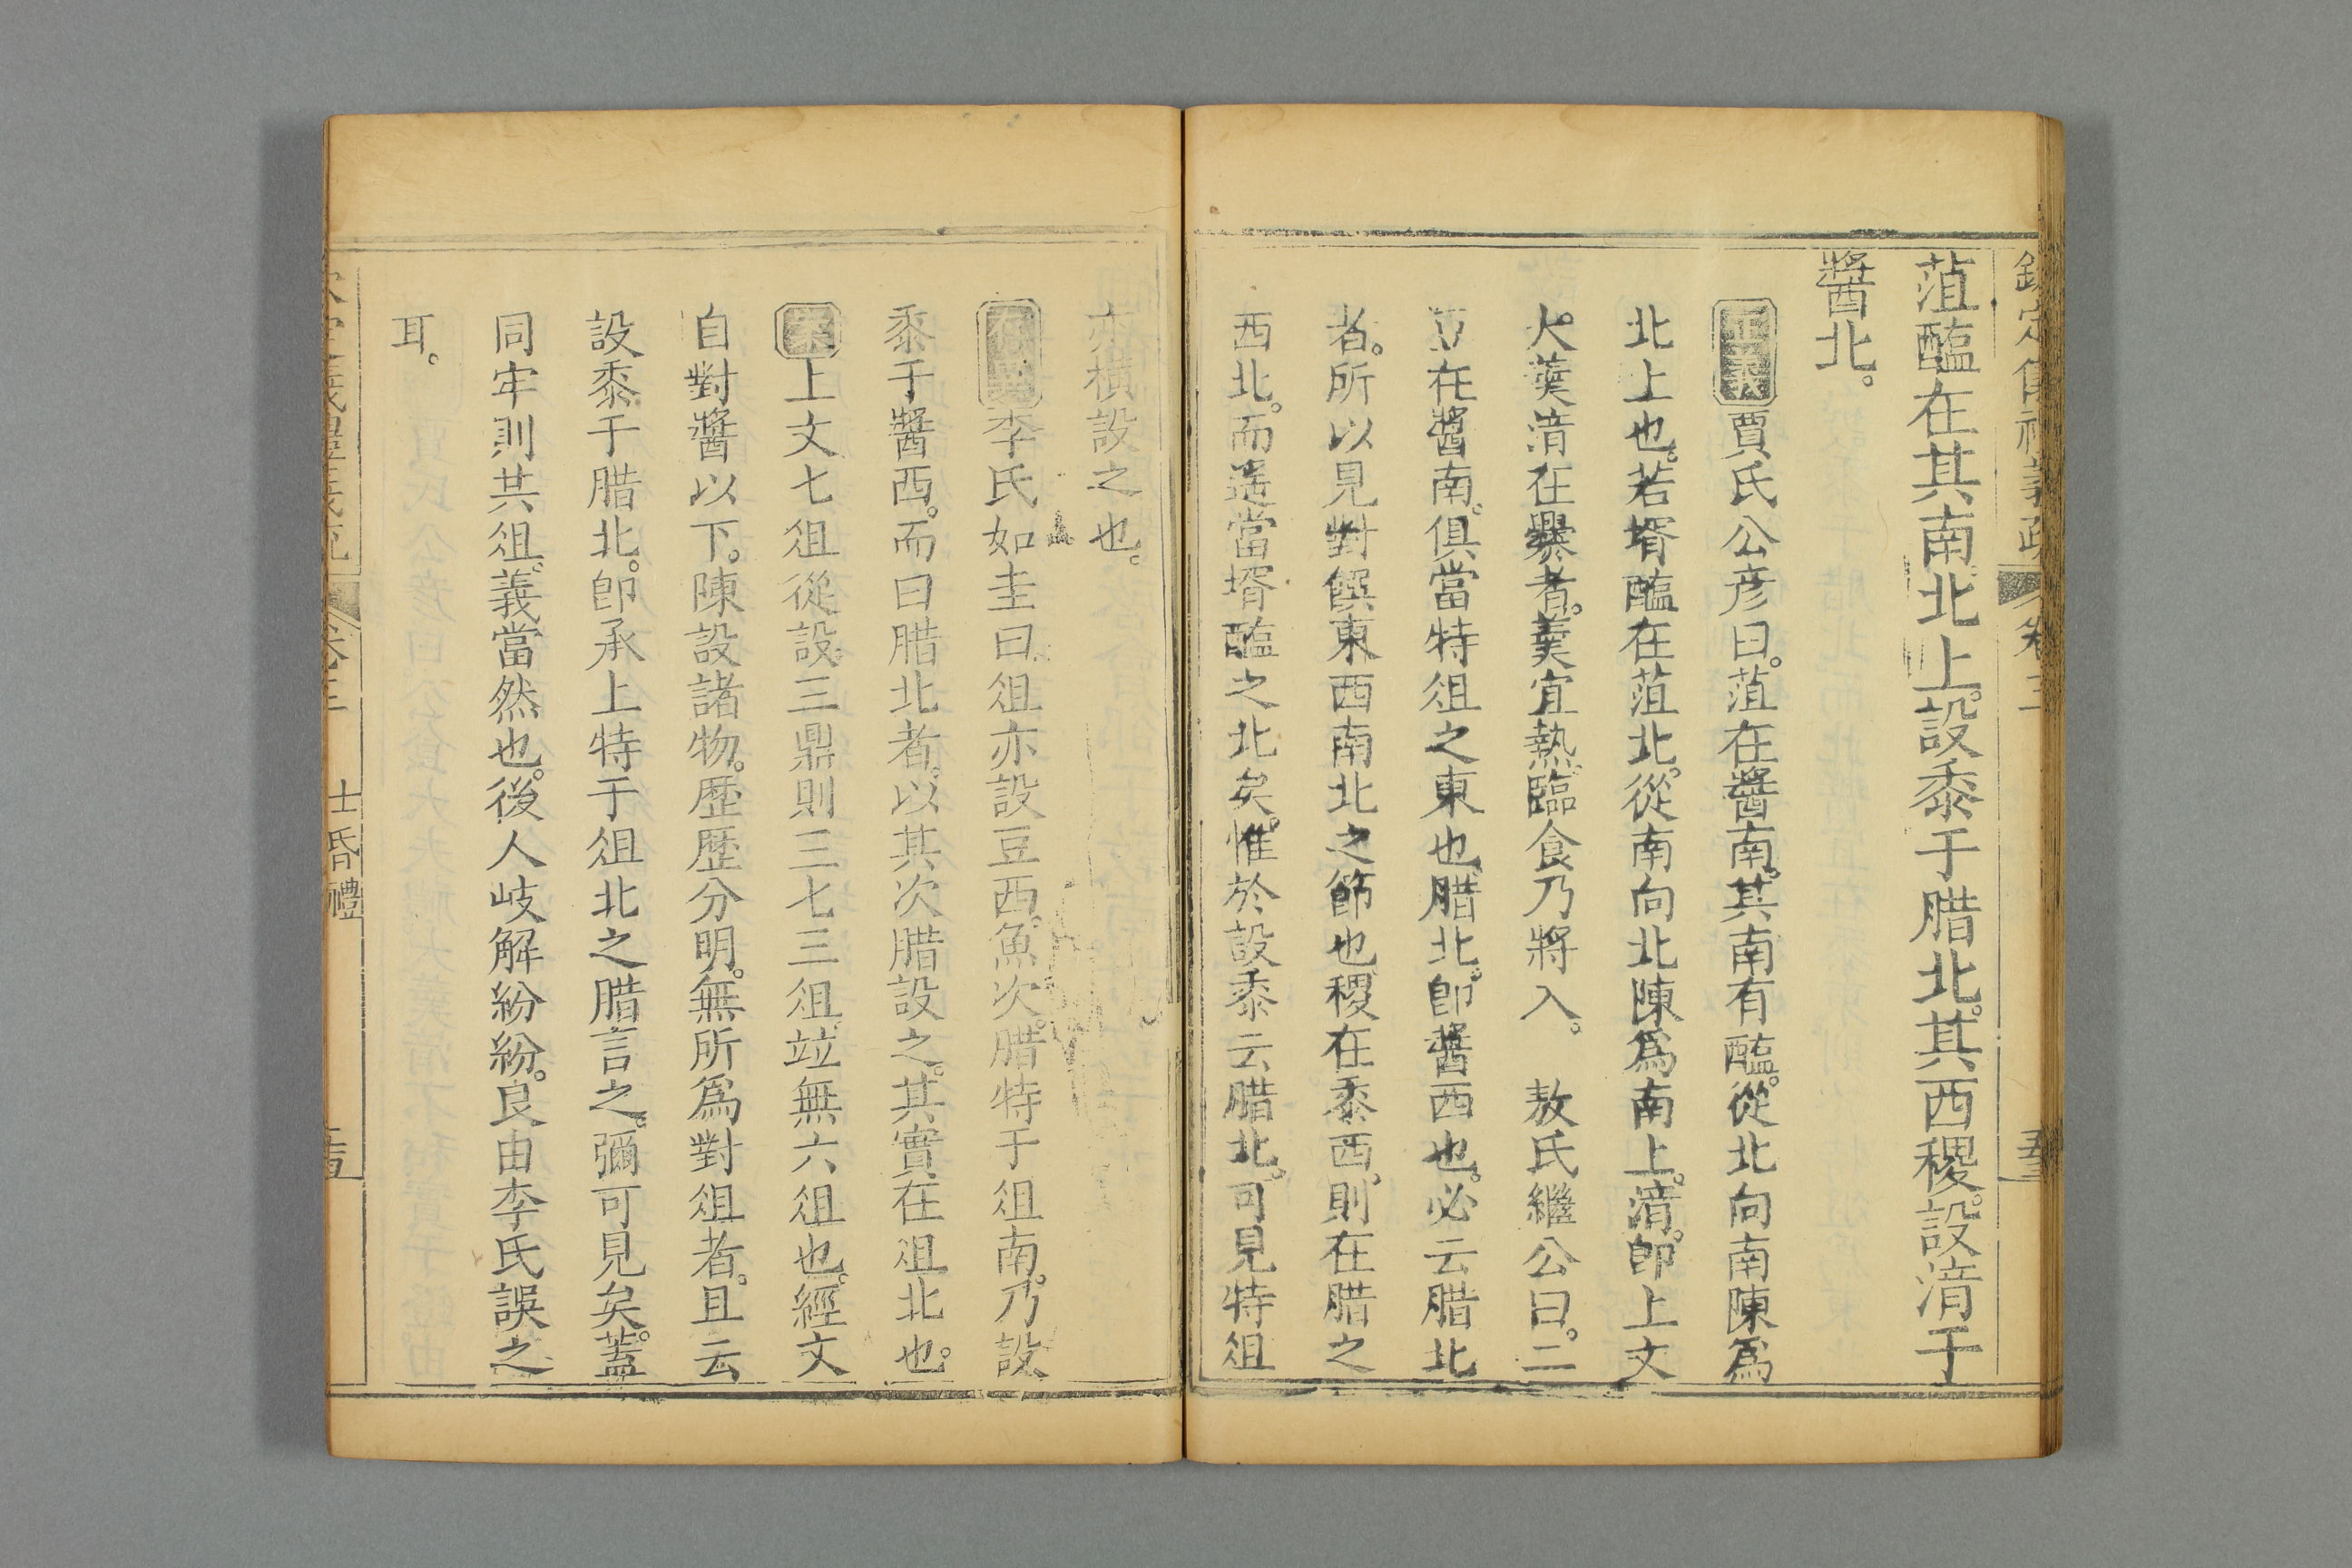 欽定儀禮義疏 卷三
菹醢在其南北上。設黍于腊北。其西稷。設湆于
醬北。
正義賈氏公彥曰。菹在醬南。其南有醢。從北向南陳爲
北上也。若壻醢在菹北。從南向北陳爲南上。湆。卽上文
大羹湆在爨者。羹宜熱。臨食乃將入。 敖氏繼公曰。二
豆在醬南。俱當特俎之東也。腊北。卽醬西也。必云腊北
者。所以見對饌東西南北之節也。稷在黍西。則在腊之
西北。而遥當壻醢之北矣。惟於設黍云腊北。可見特俎
亦橫設之也。
存異李氏如圭曰。俎亦設豆西。魚次。腊特于俎南。乃設
黍于醬西。而曰腊北者。以其次腊設之。其實在俎北也。
案上文七俎從設。三鼎則三七三俎。竝無六俎也。經文
自對醬以下。陳設諸物。歷歷分明。無所爲對俎者。且云
設黍于腊北。卽承上特于俎北之腊言之。彌可見矣。蓋
同牢則共俎。義當然也。後人岐解紛紛。良由李氏誤之
耳。
士昏禮